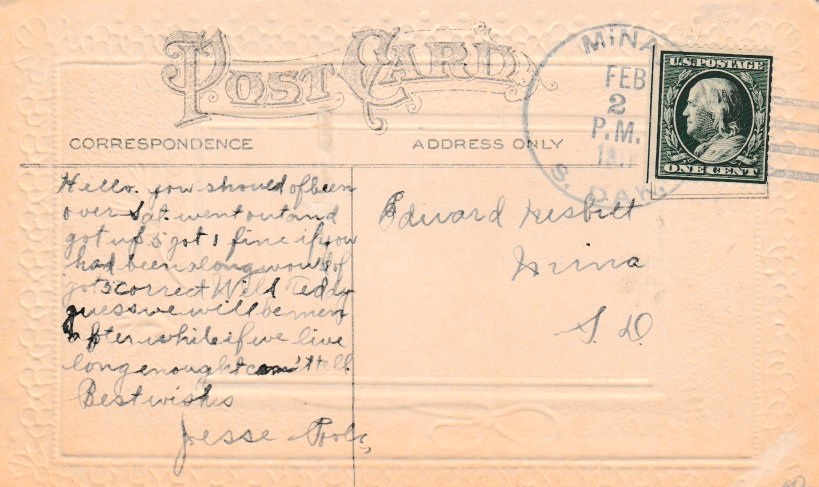 POST CARD
MINA
FEB
2
P.M.
S. DAK.
U.S. POSTAGE
ONE CENT
CORRESPONDENCE
ADDRESS ONLY
Hello. you should of been
over Sat. went out and
got up 5 got 1 fine if you
had been along would of
got 3 correct Well Teddy
guess we will be men
after while if we live
long enought can't tell.
Best wishes
Jesse
Edward Nesbitt
Mina
S. D.